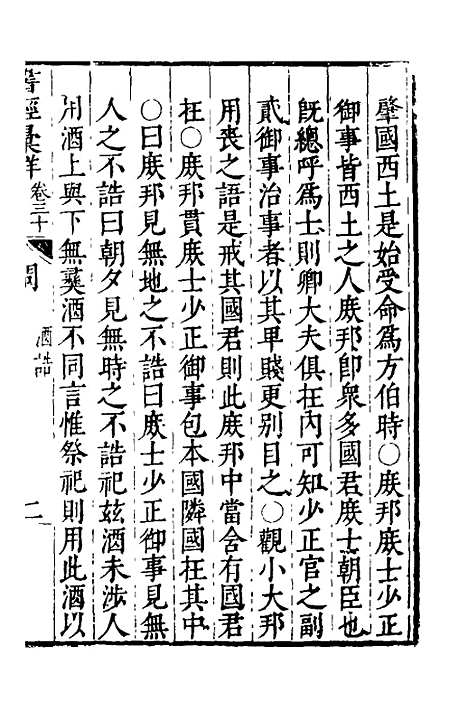 肇國西土是始受命爲方伯時〇庻邦庻士少正
御事皆西土之人庻邦卽衆多國君庻士朝臣也
旣緫呼爲士則卿大夫俱在內可知少正官之副
貳御事治事者以其卑賤更别目之〇觀小大邦
用喪之語是戒其國君則此庻邦中當含有國君
在〇庻邦貫庻士少正御事包本國隣國在其中
〇曰庻邦見無地之不誥曰庻士少正御事見無
人之不誥曰朝夕見無時之不誥祀玆酒未涉人
用酒上與下無彛酒不同言惟祭祀則用此酒以
書經彙解 卷三十 周 酒誥 二